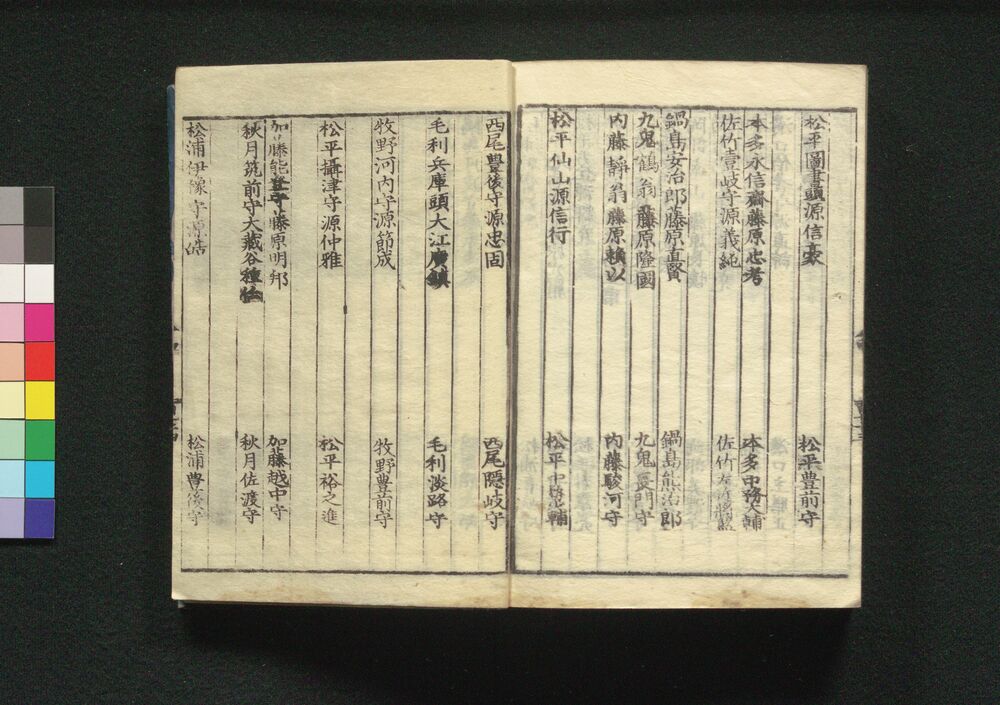 松平圖書頭源信豪 松平豊前守
本多永信齋藤原忠考 本多中務大輔
佐竹壹岐守源義純 佐竹左近將監
鍋島安治郎藤原直賢 鍋島熊治郎
九鬼鶴翁藤原隆國 九鬼長門守
内藤靜翁藤原頼以 内藤駿河守
松平仙山源信行 松平中務少輔
西尾豊後守源忠固 西尾隠岐守
毛利兵庫頭大江廣鎮 毛利淡路守
牧野河内守源節成 牧野豊前守
松平攝津守源仲雅 松平裕之進
加藤能登守藤原明邦 加藤越中守
秋月筑前守大蔵谷種 秋月佐渡守
松浦伊豫守源皓 松浦豊後守